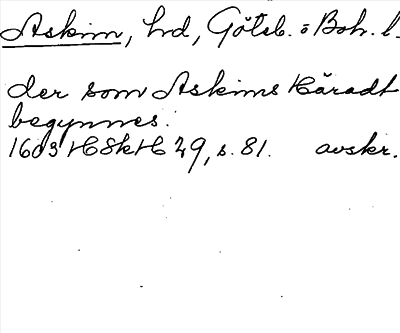 Askim, hd, Göteb. o Boh. l.
der som Askims Häradt
begynnes.
1603 HSkH 29, s. 81. avskr.